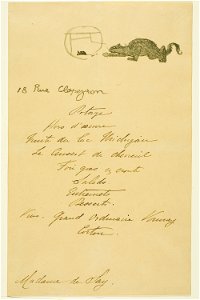 18 Rue Clapeyron
Potage
Hors d'œuvre
Truite du lac Michigan
Le Cuissot de chevreuil
Foie gras en croute
Salade
Entremets
Desserts.
Vins. Grand Ordinaire Volnay
Corton
Madame de